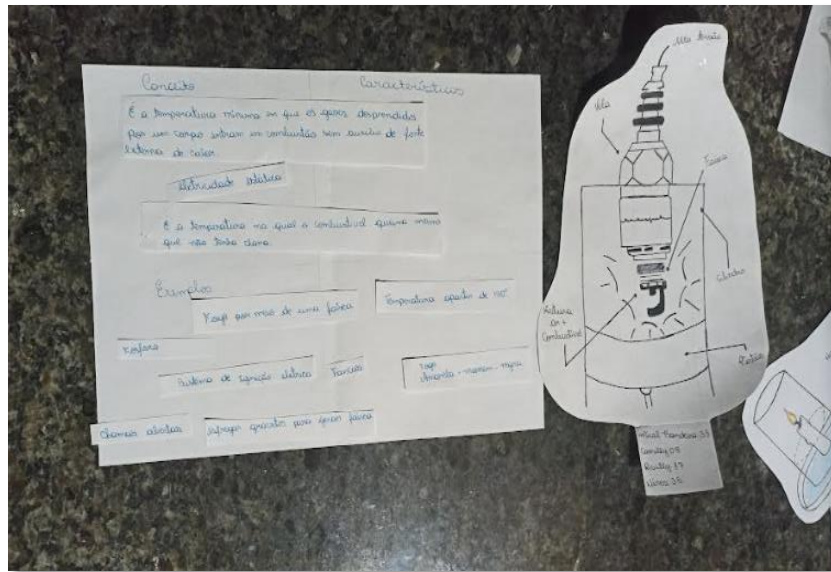 Conceito
Características
É a temperatura mínima em que os gases desprendidos
por um corpo entram em combustão sem auxílio de fonte
externa de calor.
eletricidade estática
É a temperatura na qual o combustível queima mesmo
que não tenha chama.
Exemplos
Fogo por meio de uma faísca
Temperatura apartir de
Fósforo
Sistema de ignição elétrica
Faíscas
Fogo
Amarelo - marrom -
Chamas abertas
para gerar faísca
Vela
Faísca
Cilindro
Mistura
Ar +
Combustível
Pistão